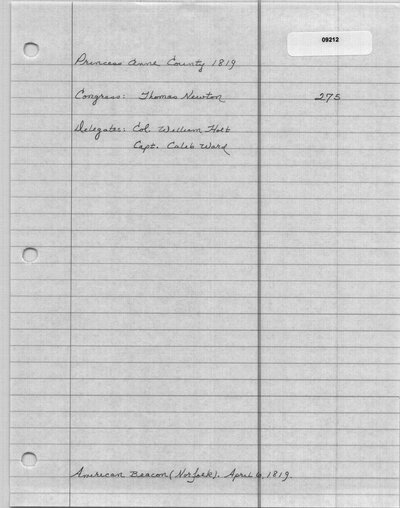 09212
Princess Anne County 1819
Congress: Thomas Newton 275
Delegates: Col. William Holt
Capt. Caleb Ward
American Beacon (Norfolk). April 6, 1819.